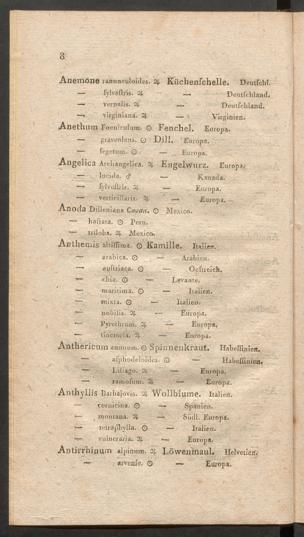 8
Anemone ranunculoides. ♃ Küchenschelle. Deutschl.
— sylvestris. ♃ — Deutschland.
— vernalis. ♃ — Deutschland.
— virginiana. ♃ — Virginien.
Anethum Foeniculum. ☉ Fenchel. Europa.
— graveolens. ☉ Dill. Europa.
— segetum. ☉ — Europa.
Angelica Archangelica. ♃ Engelwurz. Europa.
— lucida. ♂ — Kanada.
— sylvestris. ♃ — Europa.
— verticillaris. ♃ — Europa.
Anoda Dilleniana Cavan. ☉ Mexico.
— hastata. ☉ Peru.
— triloba. ♃ Mexico.
Anthemis altissima. ☉ Kamille. Italien.
— arabica. ☉ — Arabien.
— austriaca. ☉ — Oestreich.
— chia. ☉ — Levante.
— maritima. ☉ — Italien.
— mixta. ☉ — Italien.
— nobilis. ♃ — Europa.
— Pyrethrum. ♃ — Europa.
— tinctoria. ♃ — Europa.
Anthericum annuum. ☉ Spinnenkraut. Habessinien.
— asphodeloides. ☉ — Habessinien.
— Liliago. ♃ — Europa.
— ramosum. ♃ — Europa.
Anthyllis Barbajovis. ♃ Wollblume. Italien.
— cornicina. ☉ — Spanien.
— montana. ♃ — Südl. Europa.
— tetraphylla. ☉ — Italien.
— vulneraria. ♃ — Europa.
Antirrhinum alpinum. ♃ Löwenmaul. Helvetien.
— arvense. ☉ — Europa.